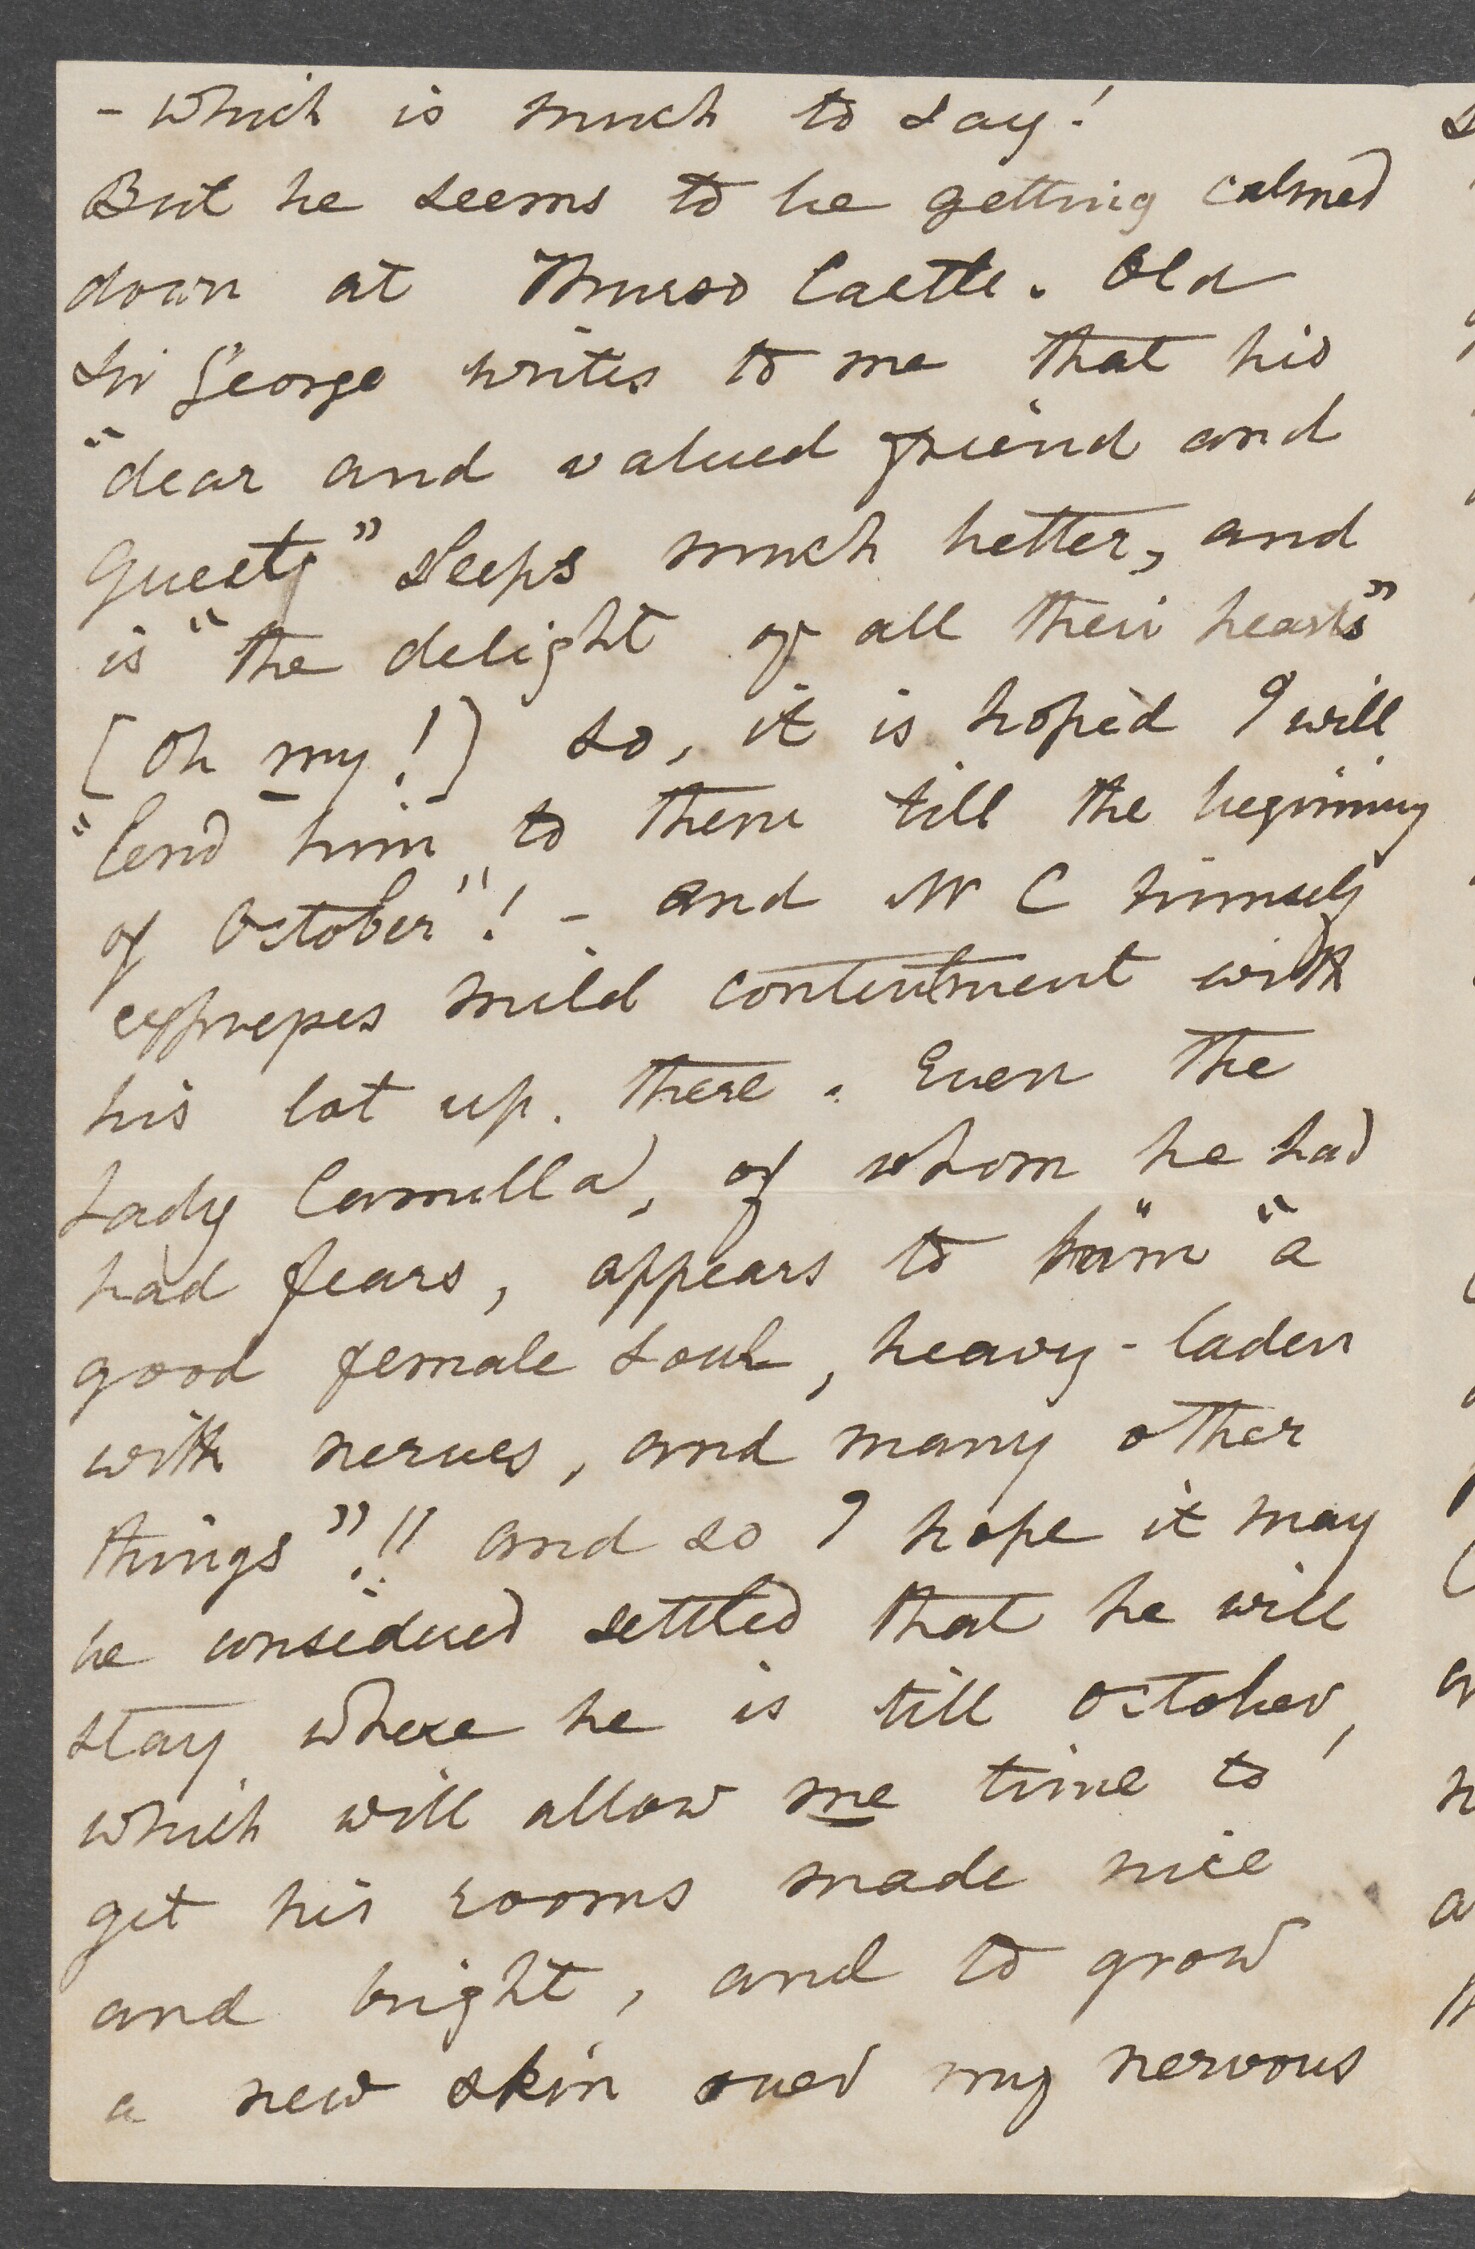 - which is much to say!
But he seems to be getting calmed
down at Thurso Castle. Old
Sir George writes to me that his
"dear and valued friend and
guest" sleeps much better, and
is "the delight of all their hearts"
[oh my!] so, it is hoped I will
"lend him to them till the beginning
of October"! - and Mr C himself
expresses mild contentment with
his lot up there. Even the
Lady Camilla, of whom he had
had fears, appears to him "a
good female soul, heavy-laden
with nerves, and many other
things"!! and so I hope it may
be considered settled that he will
stay where he is till October,
which will allow me time to
get his rooms made nice
and bright, and to grow
a new skin over my nervous